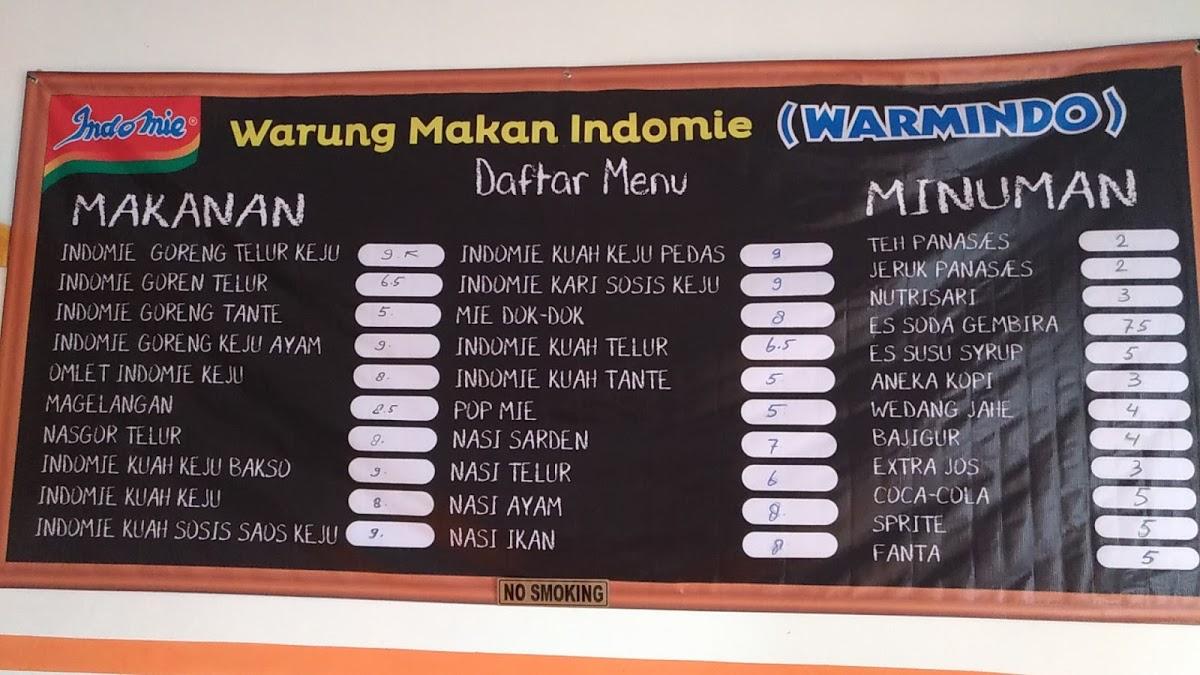 Indomie
Warung Makan Indomie (WARMINDO)
Daftar Menu
MAKANAN
INDOMIE GORENG TELUR KEJU 9.5
INDOMIE GOREN TELUR 6.5
INDOMIE GORENG TANTE 5.
INDOMIE GORENG KEJU AYAM 9.
OMLET INDOMIE KEJU 8.
MAGELANGAN 8.5
NASGOR TELUR 8.
INDOMIE KUAH KEJU BAKSO 9.
INDOMIE KUAH KEJU 8.
INDOMIE KUAH SOSIS SAOS KEJU 9.
INDOMIE KUAH KEJU PEDAS 9
INDOMIE KARI SOSIS KEJU 9
MIE DOK-DOK 8
INDOMIE KUAH TELUR 6.5
INDOMIE KUAH TANTE 5
POP MIE 5
NASI SARDEN 7
NASI TELUR 6
NASI AYAM 8.
NASI IKAN 8
MINUMAN
TEH PANAS/ES 2
JERUK PANAS/ES 2
NUTRISARI 3
ES SODA GEMBIRA 75
ES SUSU SYRUP 5
ANEKA KOPI 3
WEDANG JAHE 4
BAJIGUR 4
EXTRA JOS 3
COCA-COLA 5
SPRITE 5
FANTA 5
NO SMOKING